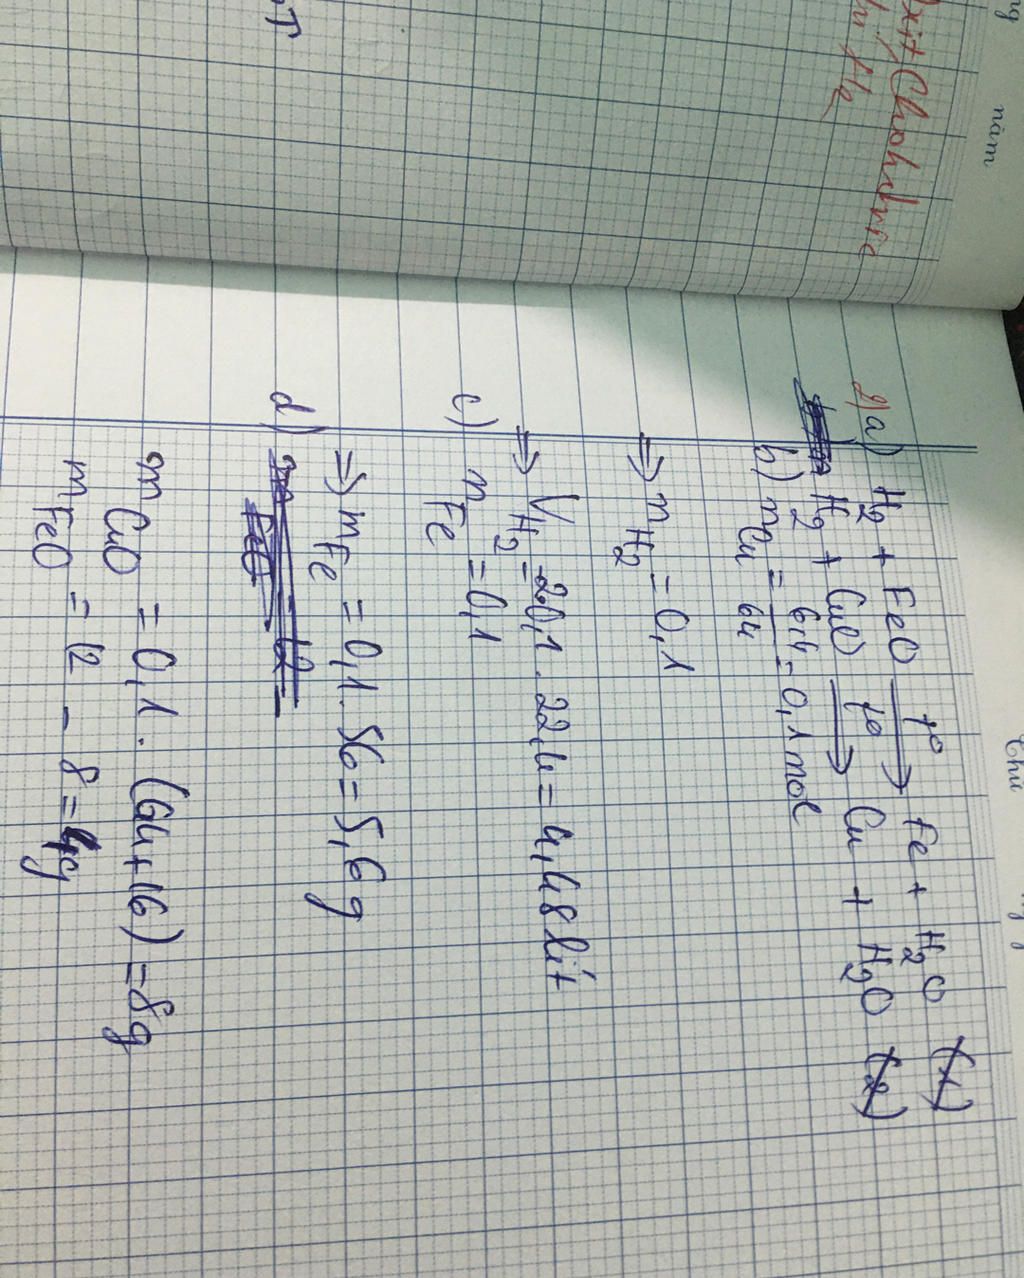 năm
Oxit + Chohidric
2)a) H2 + FeO t° → Fe + H2O (1)
H2 + CuO t° → Cu + H2O (2)
b) nCu = 6,4 / 64 = 0,1 mol
=> nH2 = 0,1
=> VH2 = 2.0,1 . 22,4 = 4,48 lít
c) nFe = 0,1
=> mFe = 0,1 . 56 = 5,6 g
d)
mCuO = 0,1 . (64 + 16) = 8g
mFeO = 12 - 8 = 4g